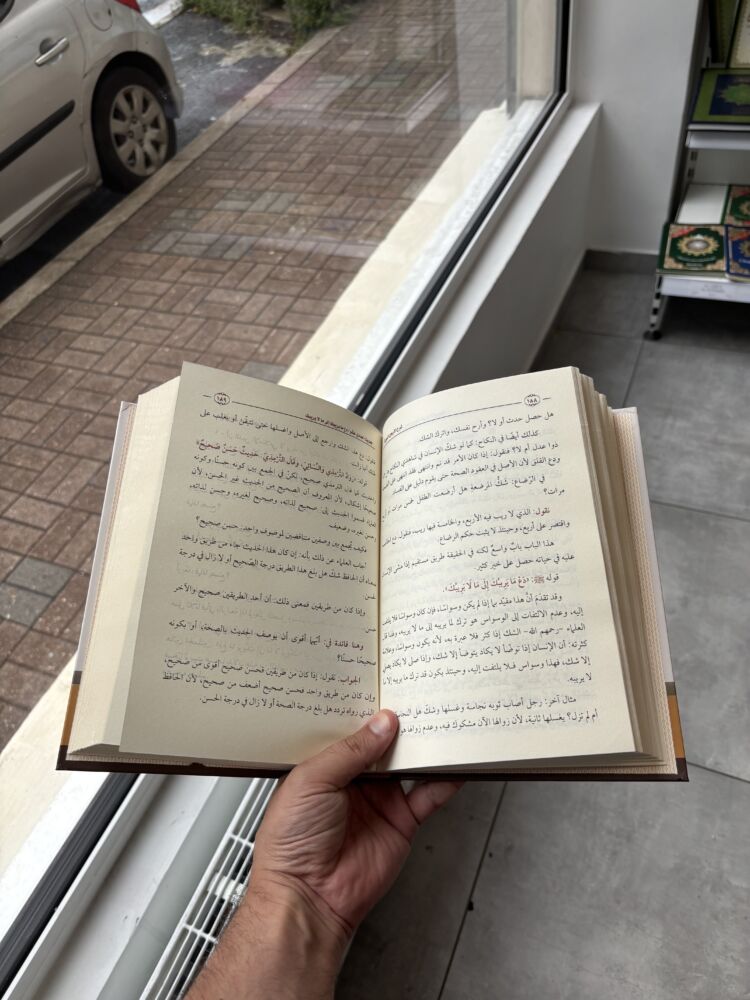 ١٨٨
هل حصل حدث أو لا؟ وأرح نفسك، واترك الشك.
كذلك أيضًا في النكاح: كما لو شك الإنسان في شاهدي النكاح
ذوا عدل أم لا؟ فنقول: إذا كان الأمر قد تم وانتهى فقد انتهى على
ودع القلق لأن الأصل في العقود الصحة حتى يقوم دليل على الفساد
في الرَّضاع: شَكُّ المرضعةِ هل أرضعت الطفل خمس مرات أو أربع
مرات؟
نقول: الذي لا ريب فيه الأربع، والخامسة فيها ريب، فنقول: دع
واقتصر على أربع، وحينئذ لا يثبت حكم الرضاع.
هذا الباب بابٌ واسعٌ لكنه في الحقيقة طريق مستقيم إذا مشى الإنسان
عليه في حياته حصل على خير كثير.
قوله ﷺ: «دَعْ مَا يَرِيبُكَ إِلَى مَا لَا يَرِيبُكَ».
وقد تقدَمَ أنَّ هذا مقيَّد بما إذا لم يكن وسواسًا، فإن كان وسواسًا فلا يلتفت
إليه، وعدم الالتفات إلى الوسواس هو ترك لما يريبه إلى ما لا يريبه، وهذا قال
العلماء -رحمهم الله- الشك إذا كثر فلا عبرة به، لأنه يكون وسواسًا، وعلامة
كثرته: أن الإنسان إذا توضأ لا يكاد يتوضأ إلا شك، وإذا صلى لا يكاد يصلي
إلا شك، فهذا وسواس فلا يلتفت إليه، وحينئذ يكون قد ترك ما يريبه إلى ما
لا يريبه.
مثال آخر: رجل أصاب ثوبه نجاسة وغسلها وشكَّ هل النجاسة
أم لم تزل؟ يغسلها ثانية، لأن زوالها الآن مشكوك فيه، وعدم زوالها هو
١٨٩
نقول: دع هذا الشك وارجع إلى الأصل واغسلها حتى تتيقَّن أو يغلب على
قوله: «رَوَاهُ التِّرمِذِي وَالنَّسَائِيُّ، وَقَالَ التِّرْمِذِيُّ: حَدِيثٌ حَسَنٌ صَحِيحٌ»
والحديث كما قال الترمذي صحيح، لكنْ في الجمع بين كونه حسنًا، وكونه
صحيحًا إشكال، لأن المعروف أن الصحيح من الحديث غير الحسن، لأن
العلماء قسموا الحديث إلى: صحيح لذاته، وصحيح لغيره، وحسن لذاته،
وحسن لغيره، وضعيف.
فكيف يُجمع بين وصفين متناقضين لموصوف واحد: حسن صحيح؟
أجاب العلماء عن ذلك بأنه: إن كان هذا الحديث جاء من طريق واحد
فمعناه أن الحافظ شكّ هل بلغ هذا الطريق درجة الصحيح أو لا زال في درجة
الحسن
وإذا كان من طريقين فمعنى ذلك: أن أحد الطريقين صحيح والآخر
حسن
وهنا فائدة في: أيّهما أقوى أن يوصف الحديث بالصحة، أو بكونه
صحيحًا حسنًا؟
الجواب: نقول: إذا كان من طريقين فَحَسَن صَحيح أقوى من صَحيح،
وإن كان من طريق واحد فحسن صحيح أضعف من صحيح، لأن الحافظ
الذي رواه تردد هل بلغ درجة الصحة أو لا زال في درجة الحسن.